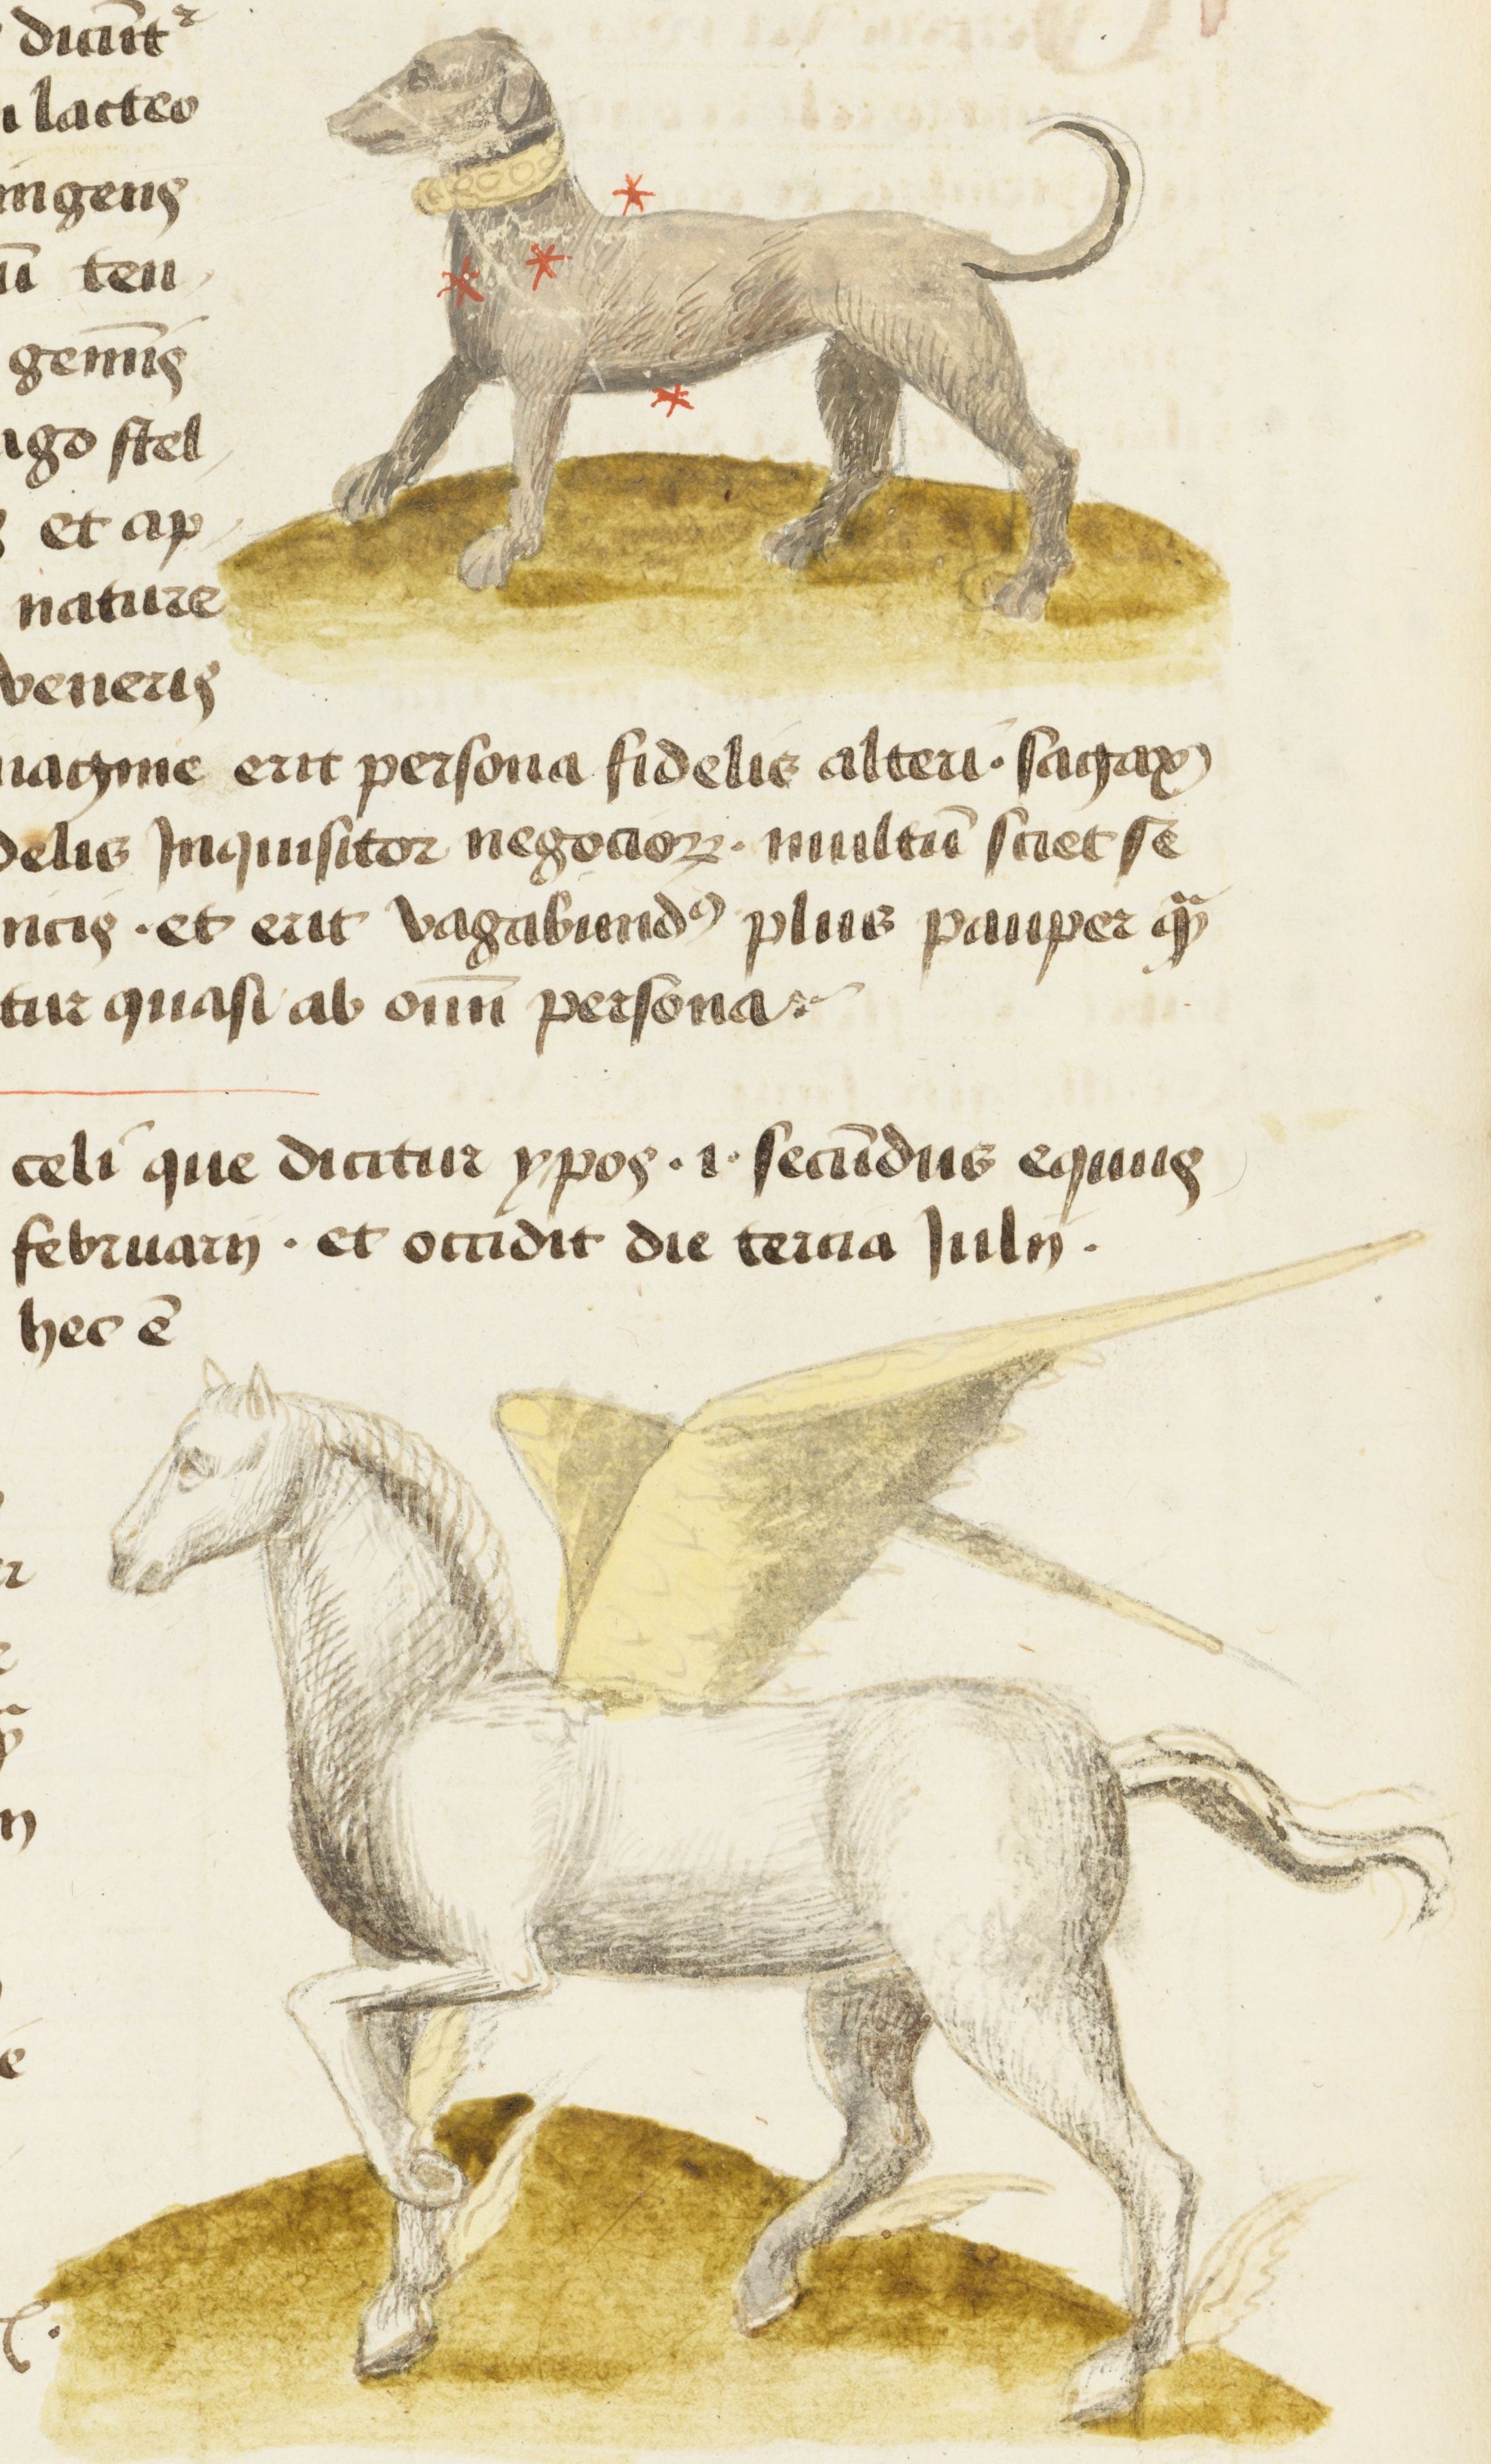 dicūt²
lacteo
ingens
ten
gemīs
ago stel
et ap
nature
veneris
magine erit persona fidelis alteri · sagax
delis Inquisitor negocioꝝ · multū sciet se
ncis · et erit vagabundꝰ plus pauper qᷓ
tur quasi ab omī persona
celi que dicitur ypos · i · secūdus equus
februarij · et occidit die tercia Julij ·
hec ē